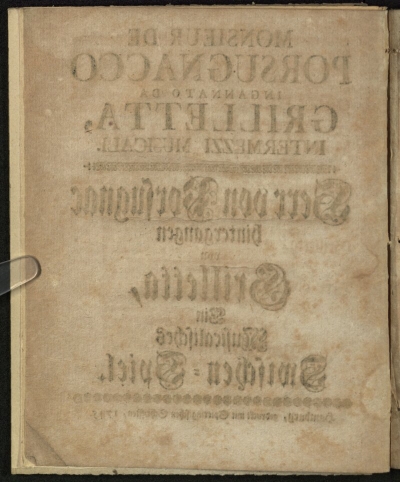 MONSIEUR DE
PORSUGNACCO
INGANNATO DA
GRILLETTA,
INTERMEZZI MUSICALI.
Herr von Porsugnac
hintergangen
von
Grilletta,
Ein
Musicalisches
Zwischen-Spiel.
Hamburg, gedruckt mit